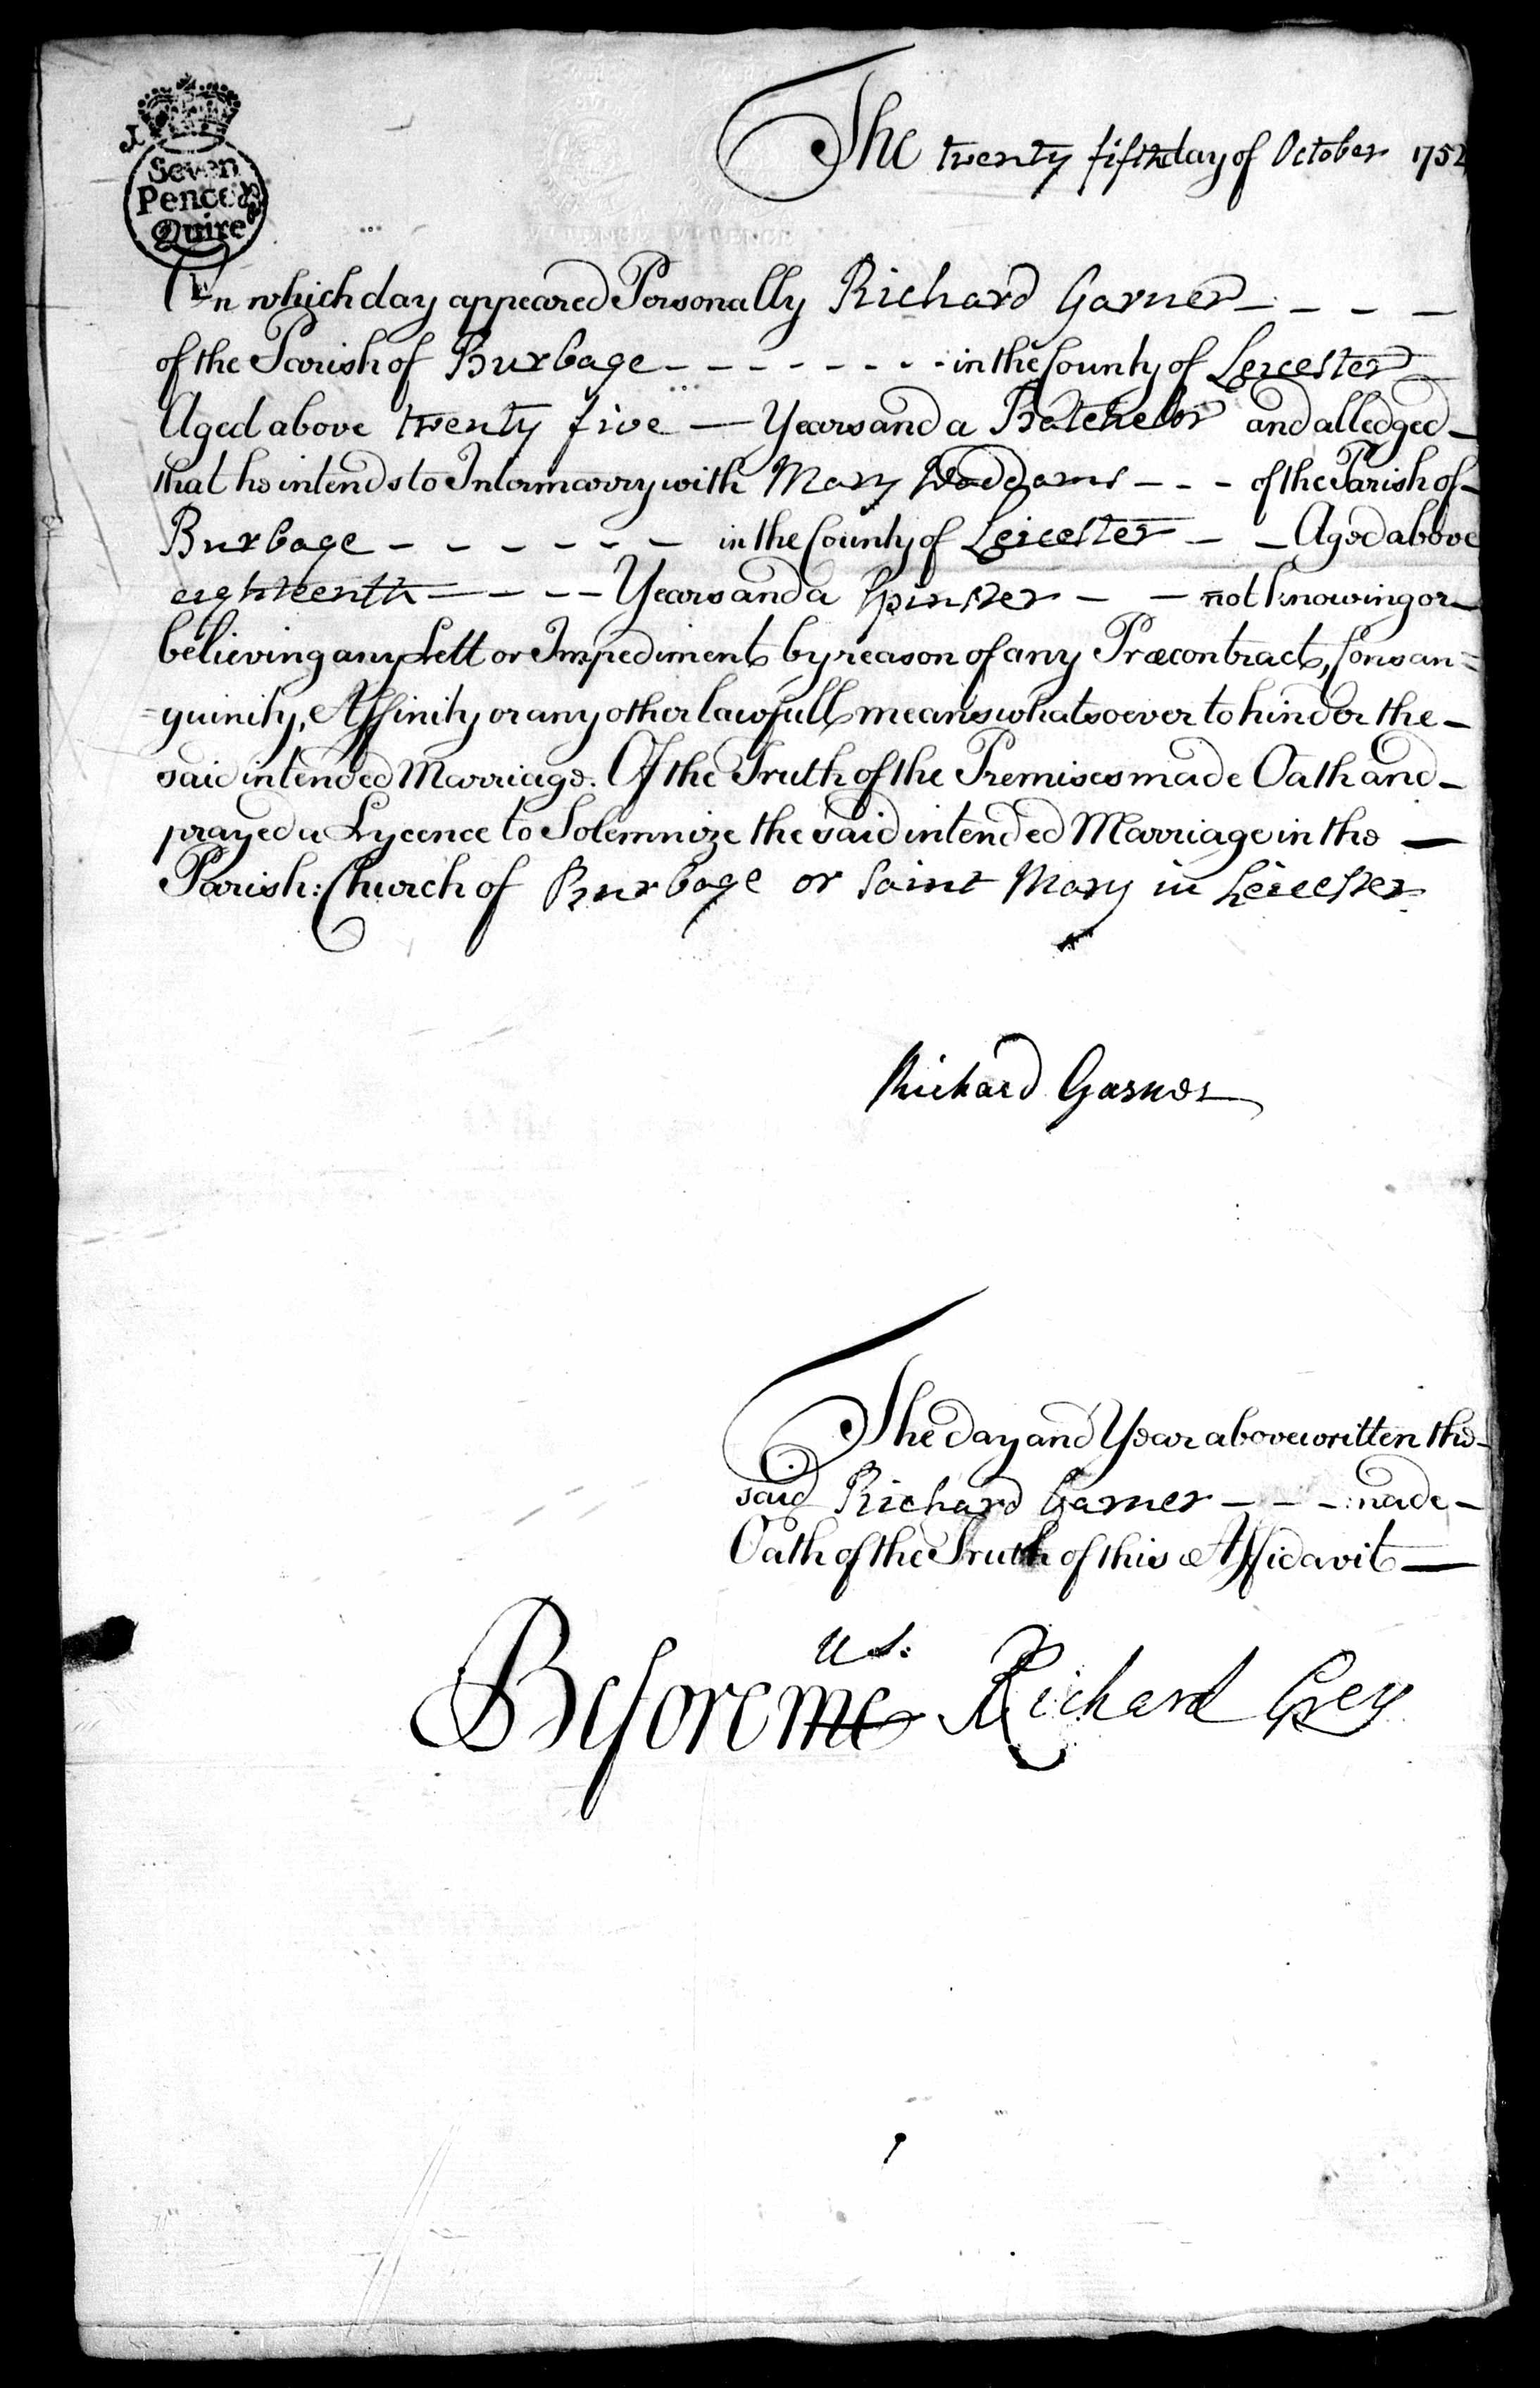 Seven
Pence
Quire
The twenty fifth day of October 1752
On which day appeared Personally Richard Garner - - - -
of the Parish of Burbage - - - - - - - - in the County of Leicester
Aged above twenty five — Years and a Batchelor and alledged -
that he intends to Intermarry with Mary Woddams - - - of the Parish of -
Burbage - - - - - - in the County of Leicester - - Aged above
eighteenth - - - - Years and a Spinster - - not knowing or -
believing any Lett or Impediment by reason of any Præcontract, Consan=
=guinity, Affinity or any other lawfull means whatsoever to hinder the -
said intended Marriage. Of the Truth of the Premises made Oath and -
prayed a Lycence to Solemnize the said intended Marriage in the —
Parish: Church of Burbage or Saint Mary in Leicester
Richard Garner
The day and Year above written the -
said Richard Garner - - - made -
Oath of the Truth of this Affidavit —
us:
Before me Richard Grey